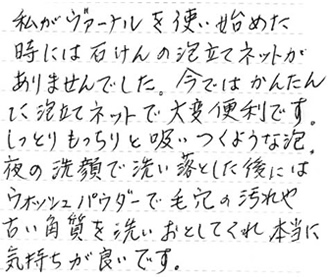 私がヴァーナルを使い始めた
時には石けんの泡立てネットが
ありませんでした。今ではかんたん
に泡立てネットで大変便利です。
しっとりもっちりと吸いつくような泡。
夜の洗顔で洗い落とした後には
ウォッシュパウダーで毛穴の汚れや
古い角質を洗いおとしてくれ本当に
気持ちが良いです。